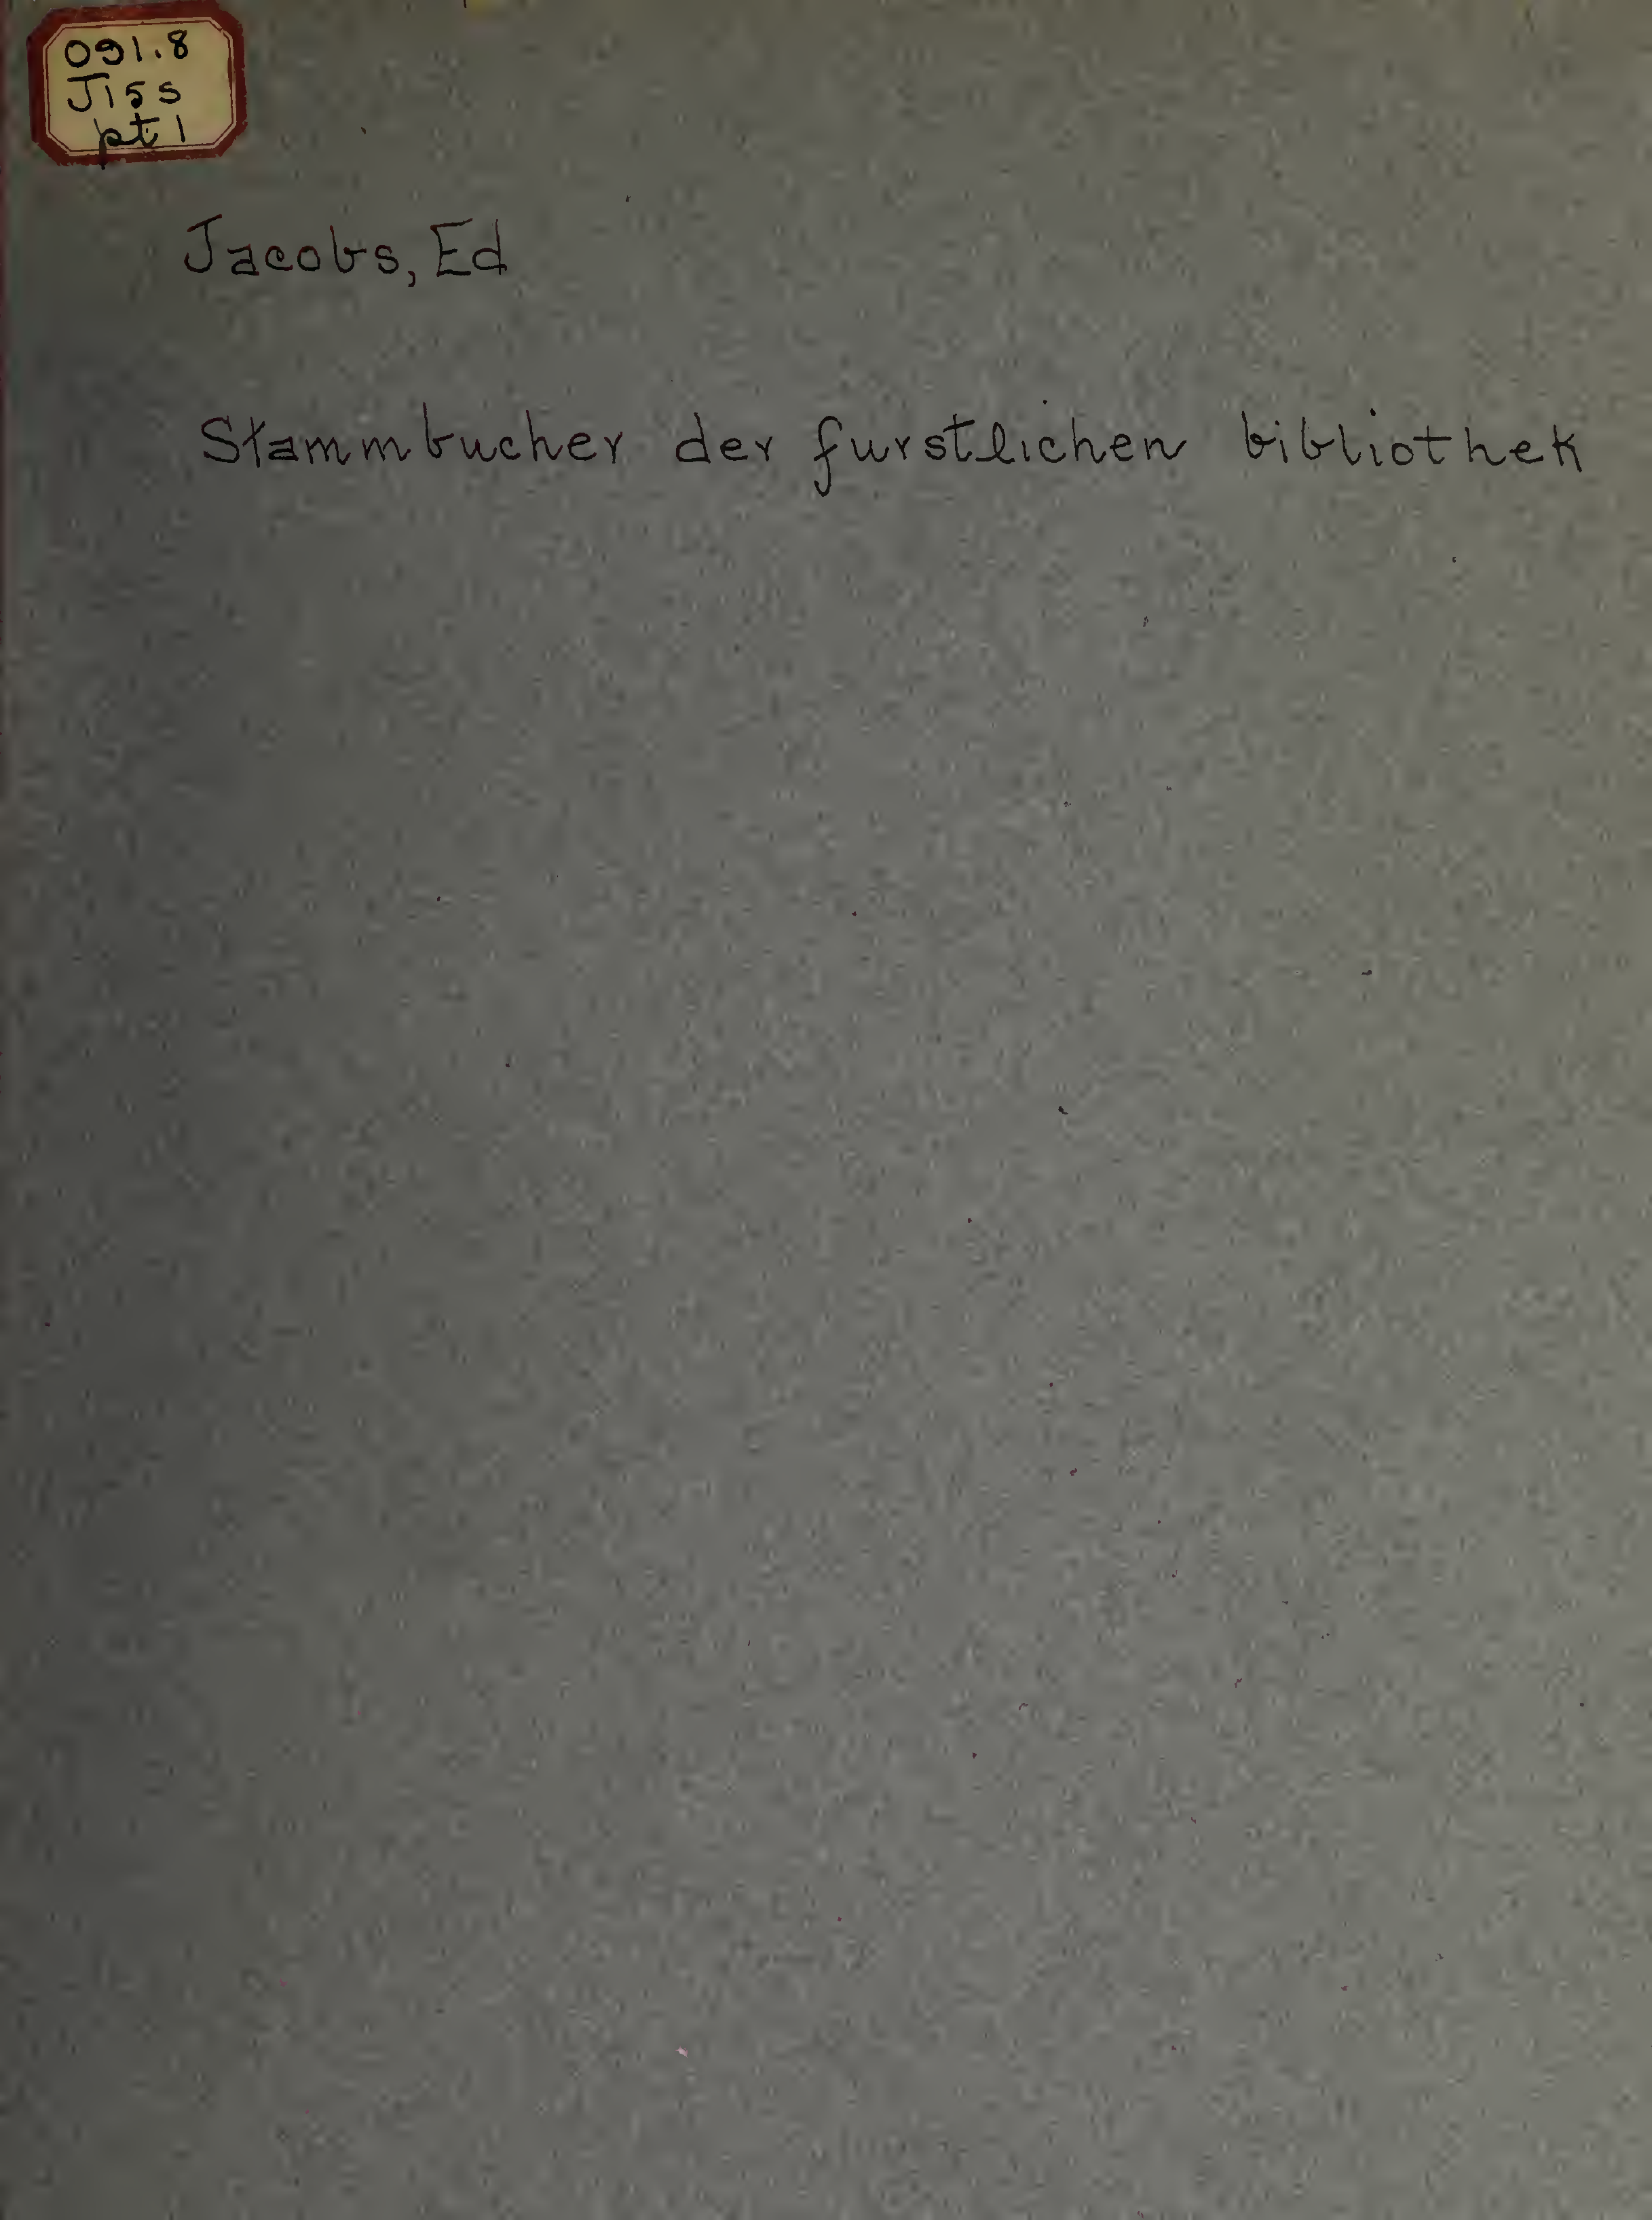 091.8
J15s
pt 1
Jacobs, Ed
Stammbucher der furstlichen bibliothek